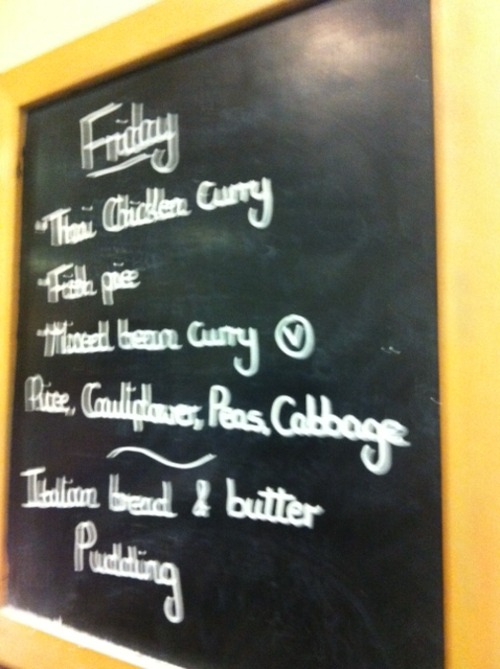 Friday
"Thai Chicken Curry
"Fish pie
"Mixed bean curry V
Rice, Cauliflower, Peas, Cabbage
Italian bread & butter
Pudding